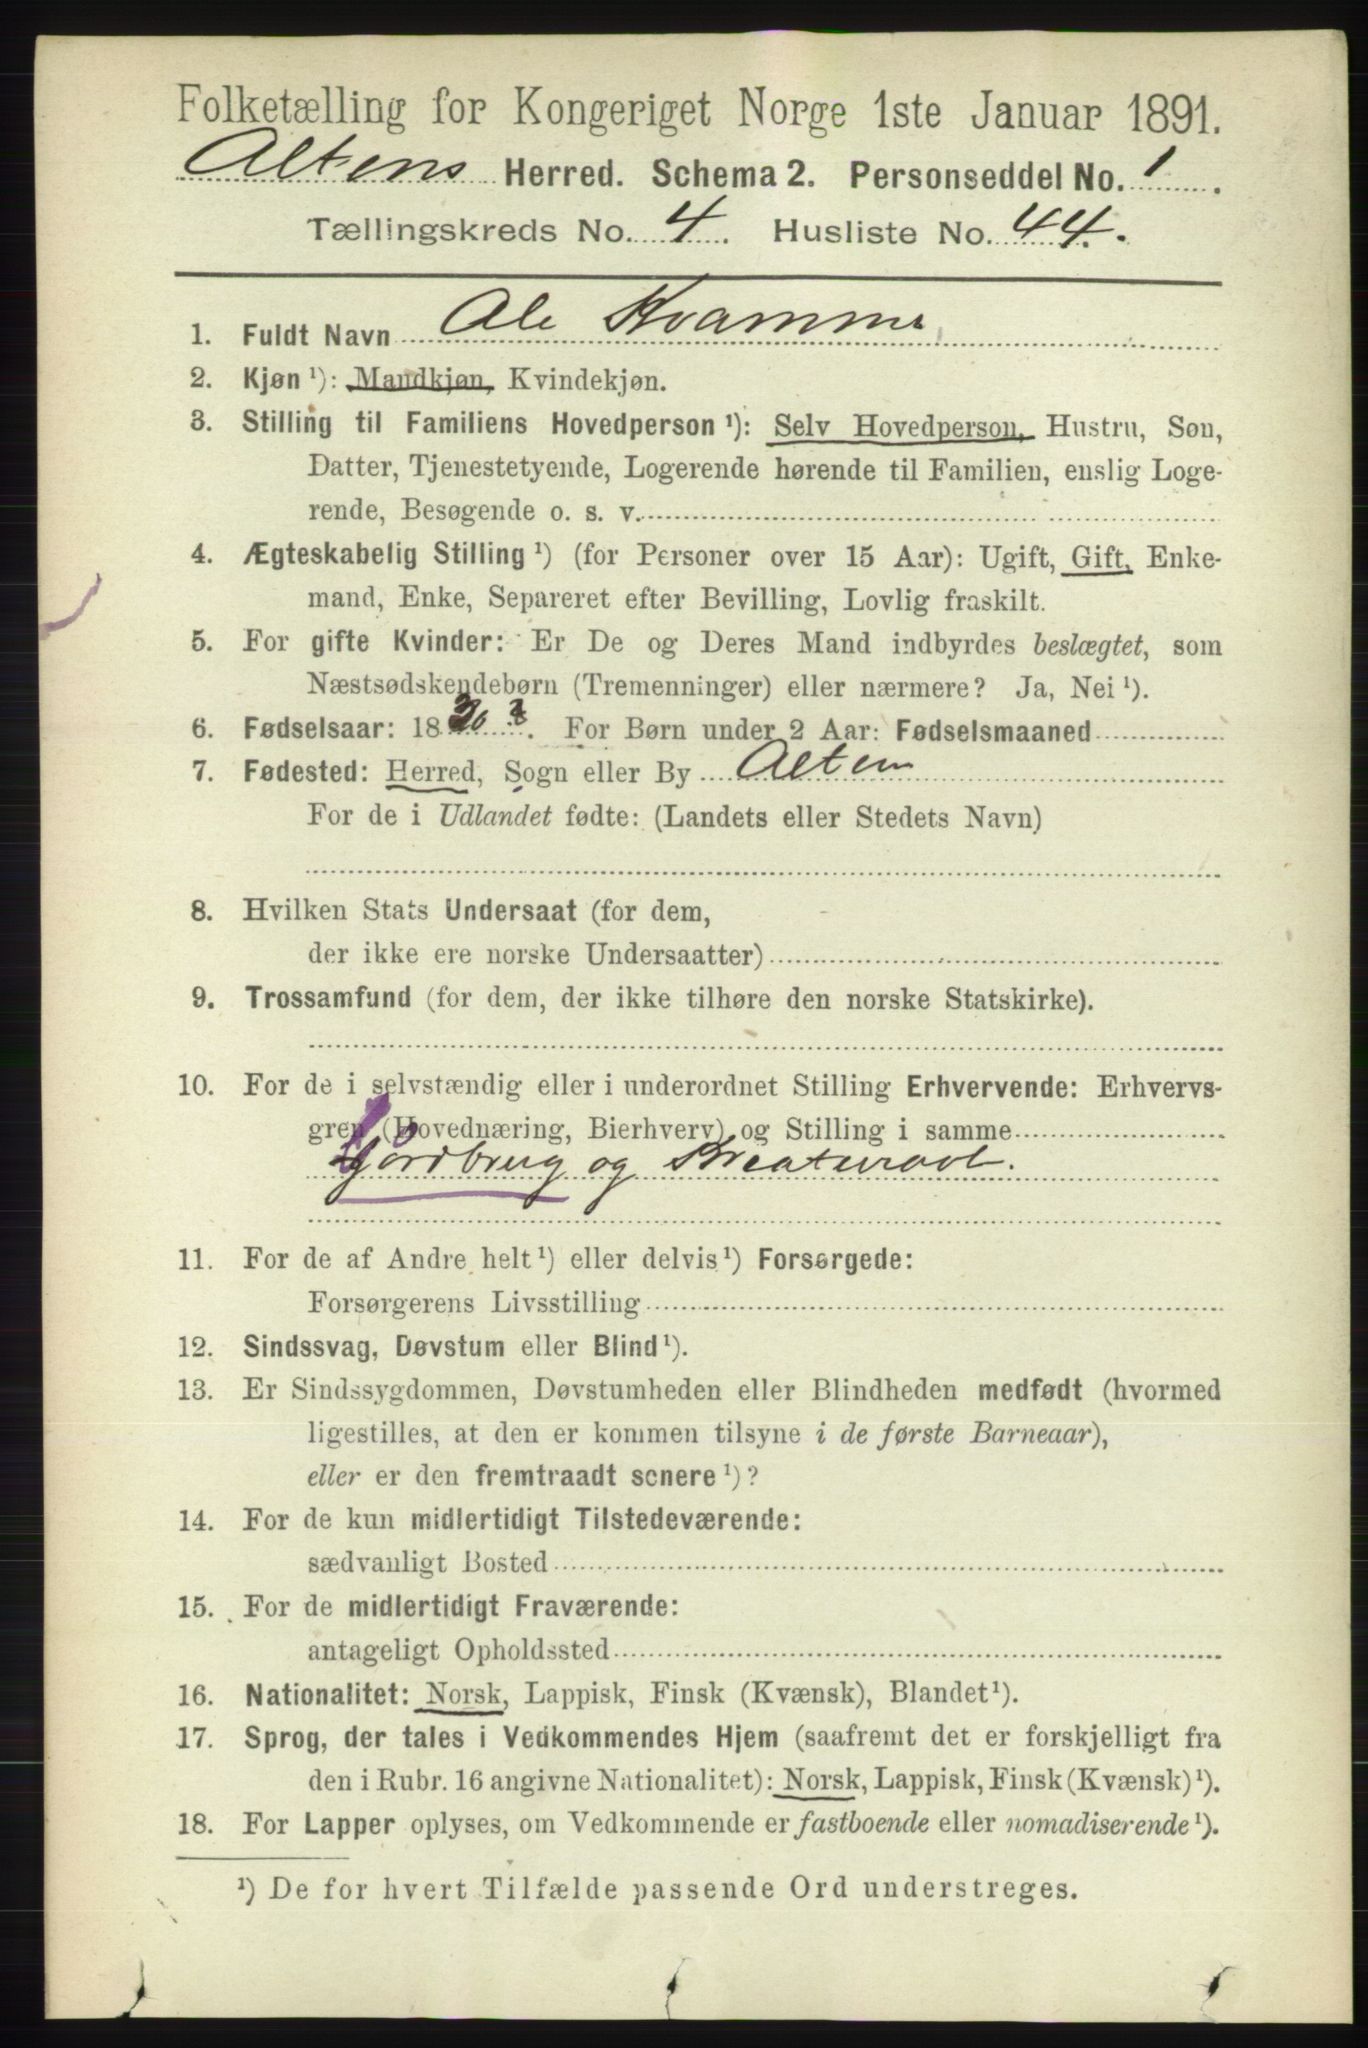 Folketælling for Kongeriget Norge 1ste Januar 1891.
Altens Herred. Schema 2. Personseddel No. 1.
Tællingskreds No. 4. Husliste No. 44.
1. Fuldt Navn Ole Kvamme
2. Kjøn ¹): Mandkjøn, Kvindekjøn.
3. Stilling til Familiens Hovedperson ¹): Selv Hovedperson, Hustru, Søn,
Datter, Tjenestetyende, Logerende hørende til Familien, enslig Loge-
rende, Besøgende o. s. v.
4. Ægteskabelig Stilling ¹) (for Personer over 15 Aar): Ugift, Gift, Enke-
mand, Enke, Separeret efter Bevilling, Lovlig fraskilt.
5. For gifte Kvinder: Er De og Deres Mand indbyrdes beslægtet, som
Næstsødskendebørn (Tremenninger) eller nærmere? Ja, Nei ¹).
6. Fødselsaar: 18 . For Børn under 2 Aar: Fødselsmaaned
7. Fødested: Herred, Sogn eller By Alten
For de i Udlandet fødte: (Landets eller Stedets Navn)
8. Hvilken Stats Undersaat (for dem,
der ikke ere norske Undersaatter)
9. Trossamfund (for dem, der ikke tilhøre den norske Statskirke).
10. For de i selvstændig eller i underordnet Stilling Erhvervende: Erhvervs-
gren (Hovednæring, Bierhverv) og Stilling i samme
Gordbrug og Kreaturavl.
11. For de af Andre helt ¹) eller delvis ¹) Forsørgede:
Forsørgerens Livsstilling
12. Sindssvag, Døvstum eller Blind ¹).
13. Er Sindssygdommen, Døvstumheden eller Blindheden medfødt (hvormed
ligestilles, at den er kommen tilsyne i de første Barneaar),
eller er den fremtraadt senere ¹)?
14. For de kun midlertidigt Tilstedeværende:
sædvanligt Bosted
15. For de midlertidigt Fraværende:
antageligt Opholdssted
16. Nationalitet: Norsk, Lappisk, Finsk (Kvænsk), Blandet ¹).
17. Sprog, der tales i Vedkommendes Hjem (saafremt det er forskjelligt fra
den i Rubr. 16 angivne Nationalitet): Norsk, Lappisk, Finsk (Kvænsk) ¹).
18. For Lapper oplyses, om Vedkommende er fastboende eller nomadiserende ¹).
¹) De for hvert Tilfælde passende Ord understreges.